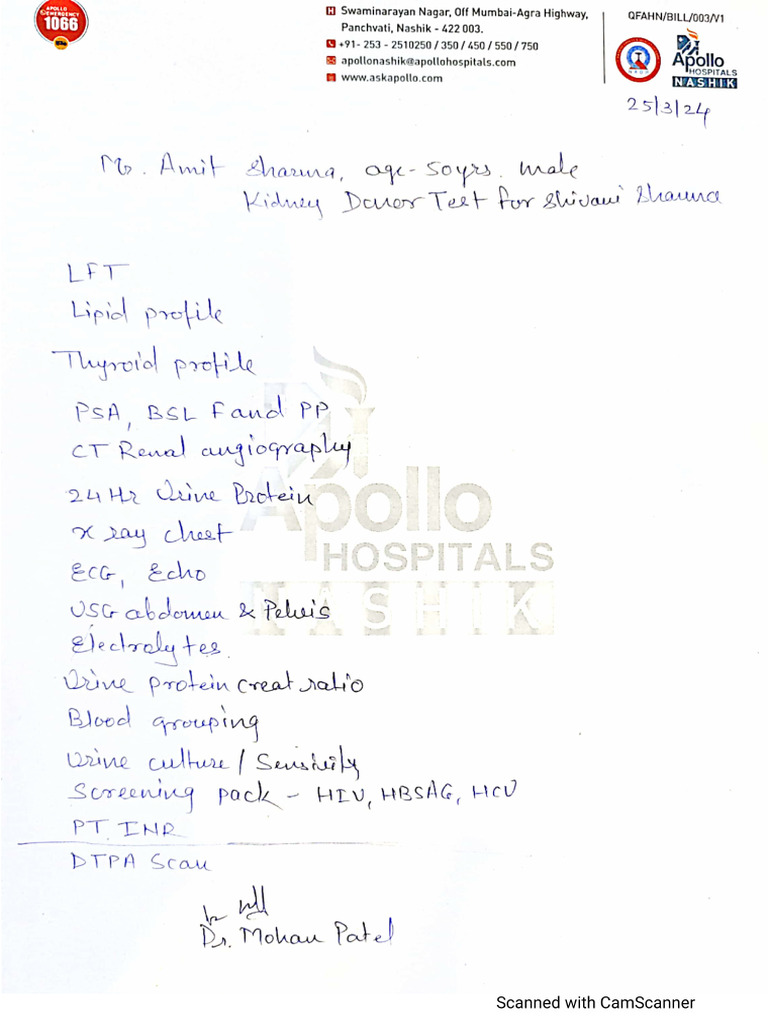 APOLLO
EMERGENCY
1066
H Swaminarayan Nagar, Off Mumbai-Agra Highway,
Panchvati, Nashik - 422 003.
+91- 253 - 2510250 / 350 / 450 / 550 / 750
apollonashik@apollohospitals.com
www.askapollo.com
QFAHN/BILL/003/V1
Apollo
HOSPITALS
NASHIK
25/3/24
Mr. Amit Sharma, age-50yrs. male
Kidney Donor Test for Shivani Sharma
LFT
Lipid profile
Thyroid profile
PSA, BSL F and PP
CT Renal angiography
24 Hr Urine Protein
X ray chest
ECG, Echo
USG abdomen & Pelvis
Electrolytes
Urine protein creat ratio
Blood grouping
Urine culture / Sensitivity
Screening pack - HIV, HBSAG, HCV
PT. INR
DTPA Scan
Dr. Mohan Patel
Apollo
HOSPITALS
NASHIK
Scanned with CamScanner